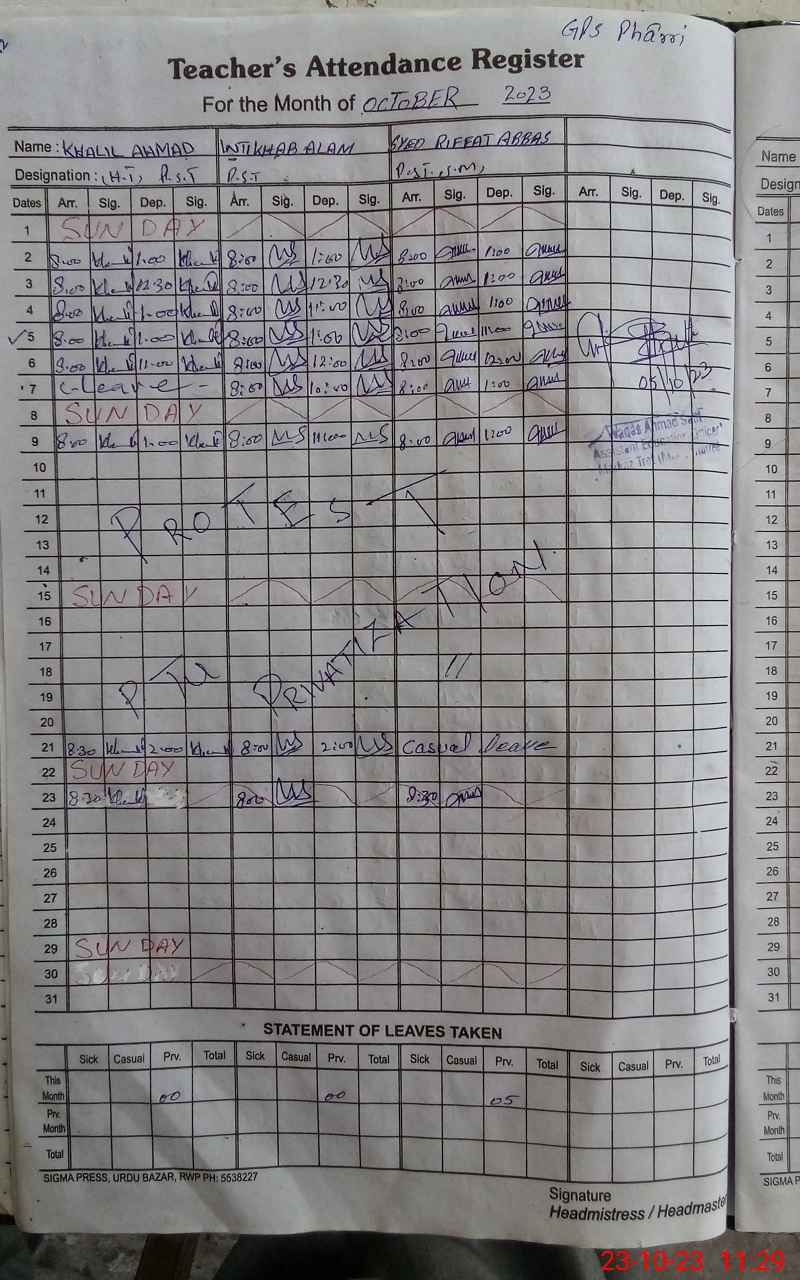 GPS Pharri
Teacher's Attendance Register
For the Month of OCTOBER 2023
Name : KHALIL AHMAD INTIKHAB ALAM SYED RIFFAT ABBAS
Designation : (H.T) P.S.T P.S.T P.S.T.,S.M,
Dates Arr. Sig. Dep. Sig. Arr. Sig. Dep. Sig. Arr. Sig. Dep. Sig. Arr. Sig. Dep. Sig.
1 SUNDAY
2 8.00 1.00 8:00 1:00 8:00 1:00
3 8.00 12.30 8:00 12:30 8:00 1:00
4 8.00 1.00 8:00 8:00 1:00
5 8.00 1.00 8:00 1:00 8:00 11:00
6 8.00 11.00 8:00 12:00 8:00 12:00
7 C-Leave- 8:00 10:00 8:00 1:00 05/10/23
8 SUNDAY
9 8.00 1.00 8:00 8:00 1:00
Waqas Ahmad
Assistant Education Officer
10
11
12 PROTEST
13
14
15 SUNDAY
16
17
18
19 PTU PRIVATIZATION.
20
21 8.30 2.00 8:00 2:00 Casual leave
22 SUNDAY
23 8.30 8:00 8:30
24
25
26
27
28
29 SUNDAY
30
31
STATEMENT OF LEAVES TAKEN
Sick Casual Prv. Total Sick Casual Prv. Total Sick Casual Prv. Total Sick Casual Prv. Total
This Month 00 00 05
Prv. Month
Total
SIGMA PRESS, URDU BAZAR, RWP PH: 5538227
Signature
Headmistress / Headmaste
Name
Design
Dates
1
2
3
4
5
6
7
8
9
10
11
12
13
14
15
16
17
18
19
20
21
22
23
24
25
26
27
28
29
30
31
This Month
Prv. Month
Total
SIGMA P
23-10-23 11:29